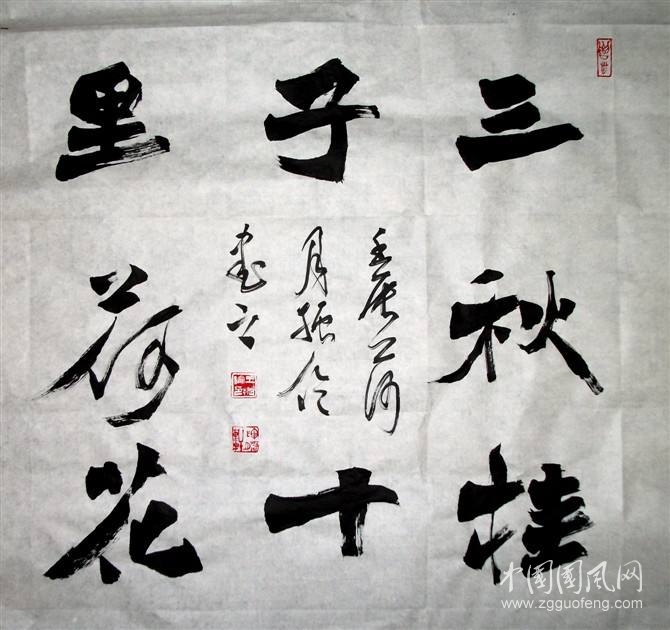 三秋桂
子十
里荷花
壬辰荷
月振伦
书
中国国风网
www.zgguofeng.com